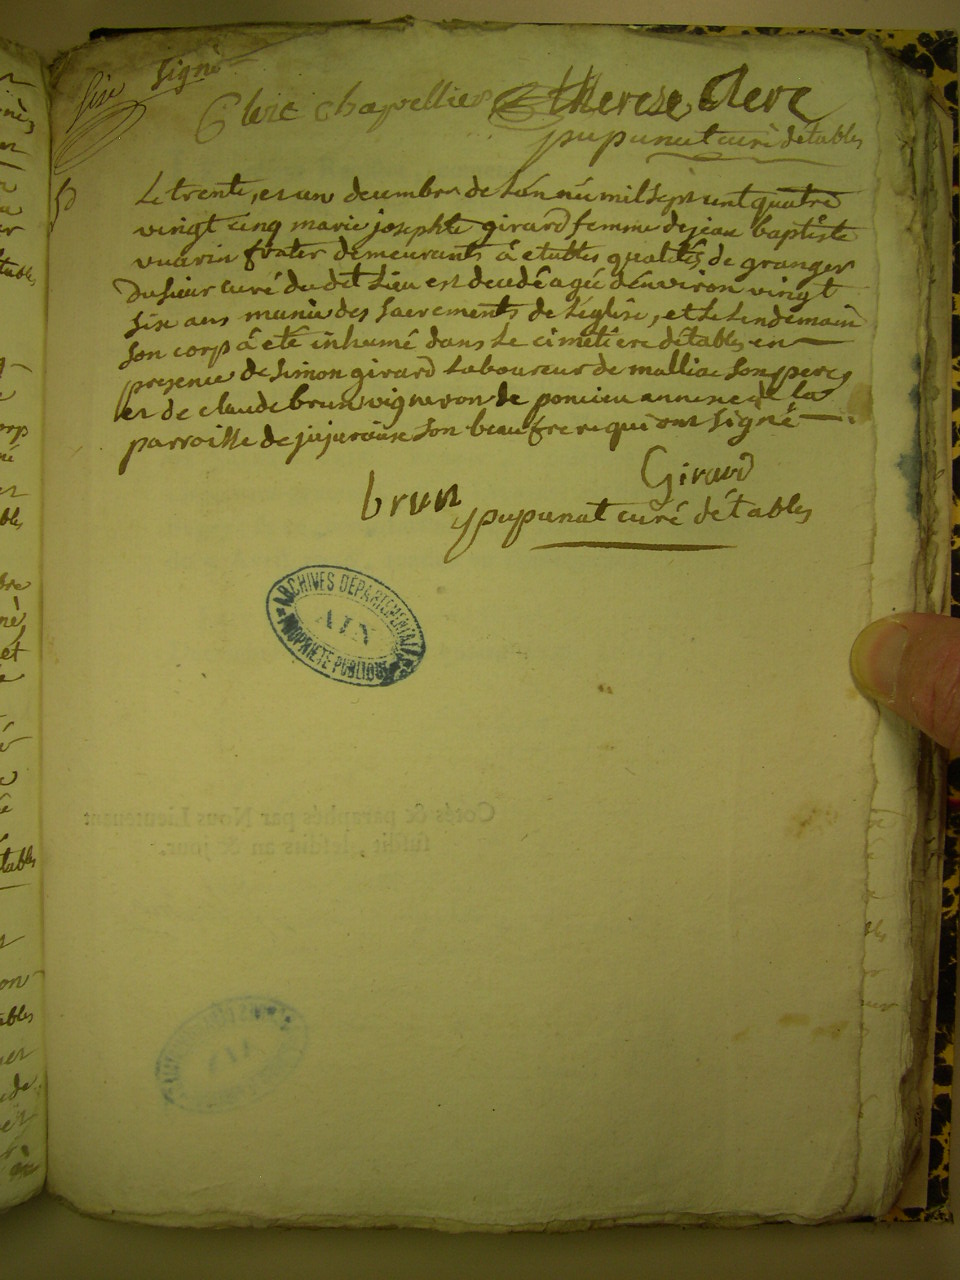 Sixe signé
Clerc Chapellier Therese Clerc
ypupunat curé détables
Le trente, et un decembre de L'an né mil sept cent quatre
vingt cinq marie josephte girard femme de jean baptiste
vuarin frater demeurants à étables qualités de granger
Du sieur curé du dit Lieu est decedé agée d'environ vingt
Six ans munie des Sacrements de L'église, et Le Lendemain
Son corp à eté inhumé dans Le cimetiere détables en
presence de Simon girard Laboureur de malliac Son pere
et de claude brun vigneron de poncieu annexe de la
parroisse de jujurieuse Son beau frere qui ont signé
Girard
brun
ypupunat curé détables
ARCHIVES DÉPARTEMENTALES
AIN
PROPRIÉTÉ PUBLIQUE
Cotés & paraphés par Nous Lieutenant
susdit, lesdits an & jour.